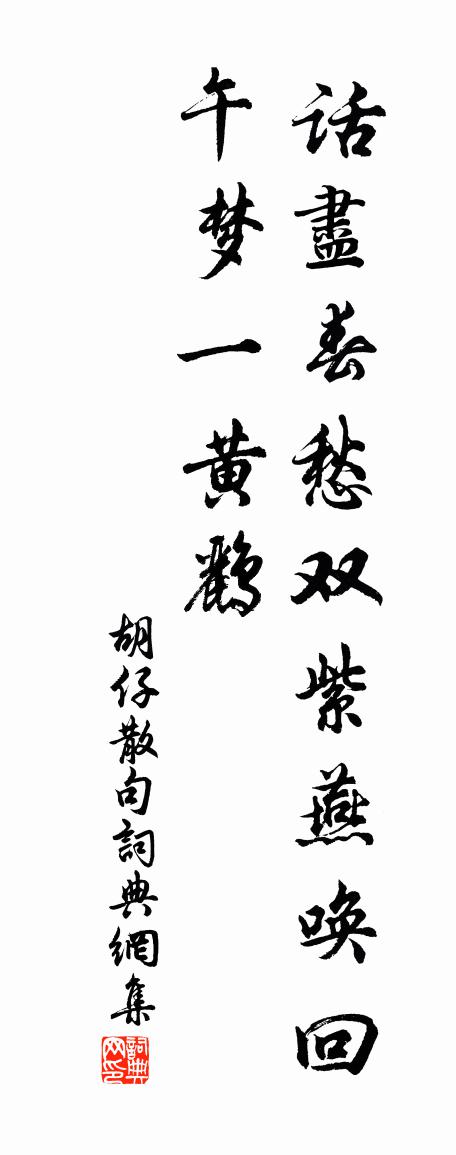 话盡春愁双紫燕唤回
午梦一黄鸝
胡仔散句詞典網集
詞典网印